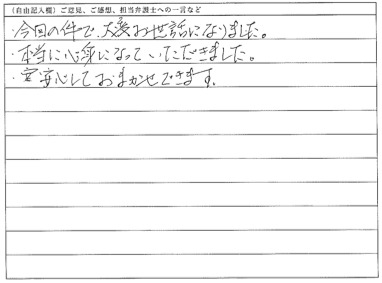 (自由記入欄)ご意見、ご感想、担当弁護士への一言など
・今回の件で、大変お世話になりました。
・本当に心身になっていただきました。
・安心しておまかせできます。